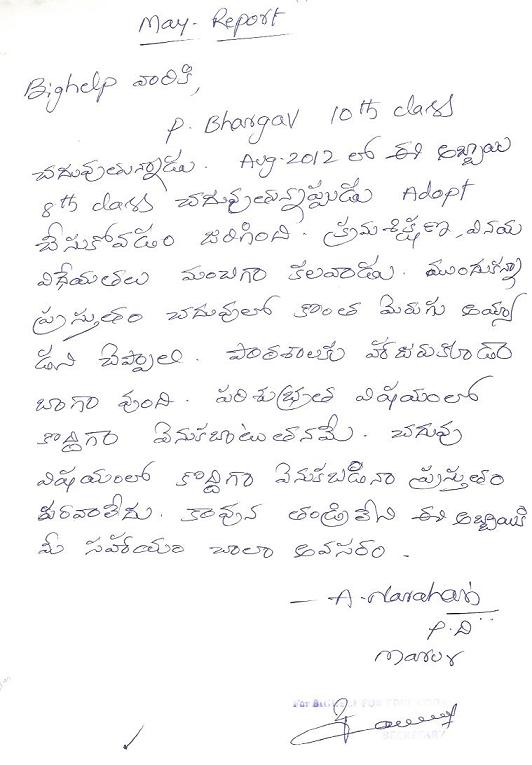 May - Report
Bighelp వారికి,
P. Bhargav 10th class
చదువుతున్నాడు. Aug-2012 లో ఈ అబ్బాయి
8th class చదువుతున్నప్పుడు Adopt
చేసుకోవడం జరిగింది. క్రమశిక్షణ, వినయ
విధేయతలు మంచిగా కలవాడు. ముందుకన్నా
ప్రస్తుతం చదువులో కొంత మెరుగు అయ్యా
డని చెప్పాలి. పాఠశాలకు హాజరుకూడా
బాగా వుంది. పరిశుభ్రత విషయంలో
కొద్దిగా వెనుకబాటుతనమే. చదువు
విషయంలో కొద్దిగా వెనుకబడినా ప్రస్తుతం
ఫరవాలేదు. కావున తండ్రిలేని ఈ అబ్బాయికి
మీ సహాయం చాలా అవసరం.
- A. Narahari
P.D
Marur
For BIGHELP FOR EDUCATION
SECRETARY